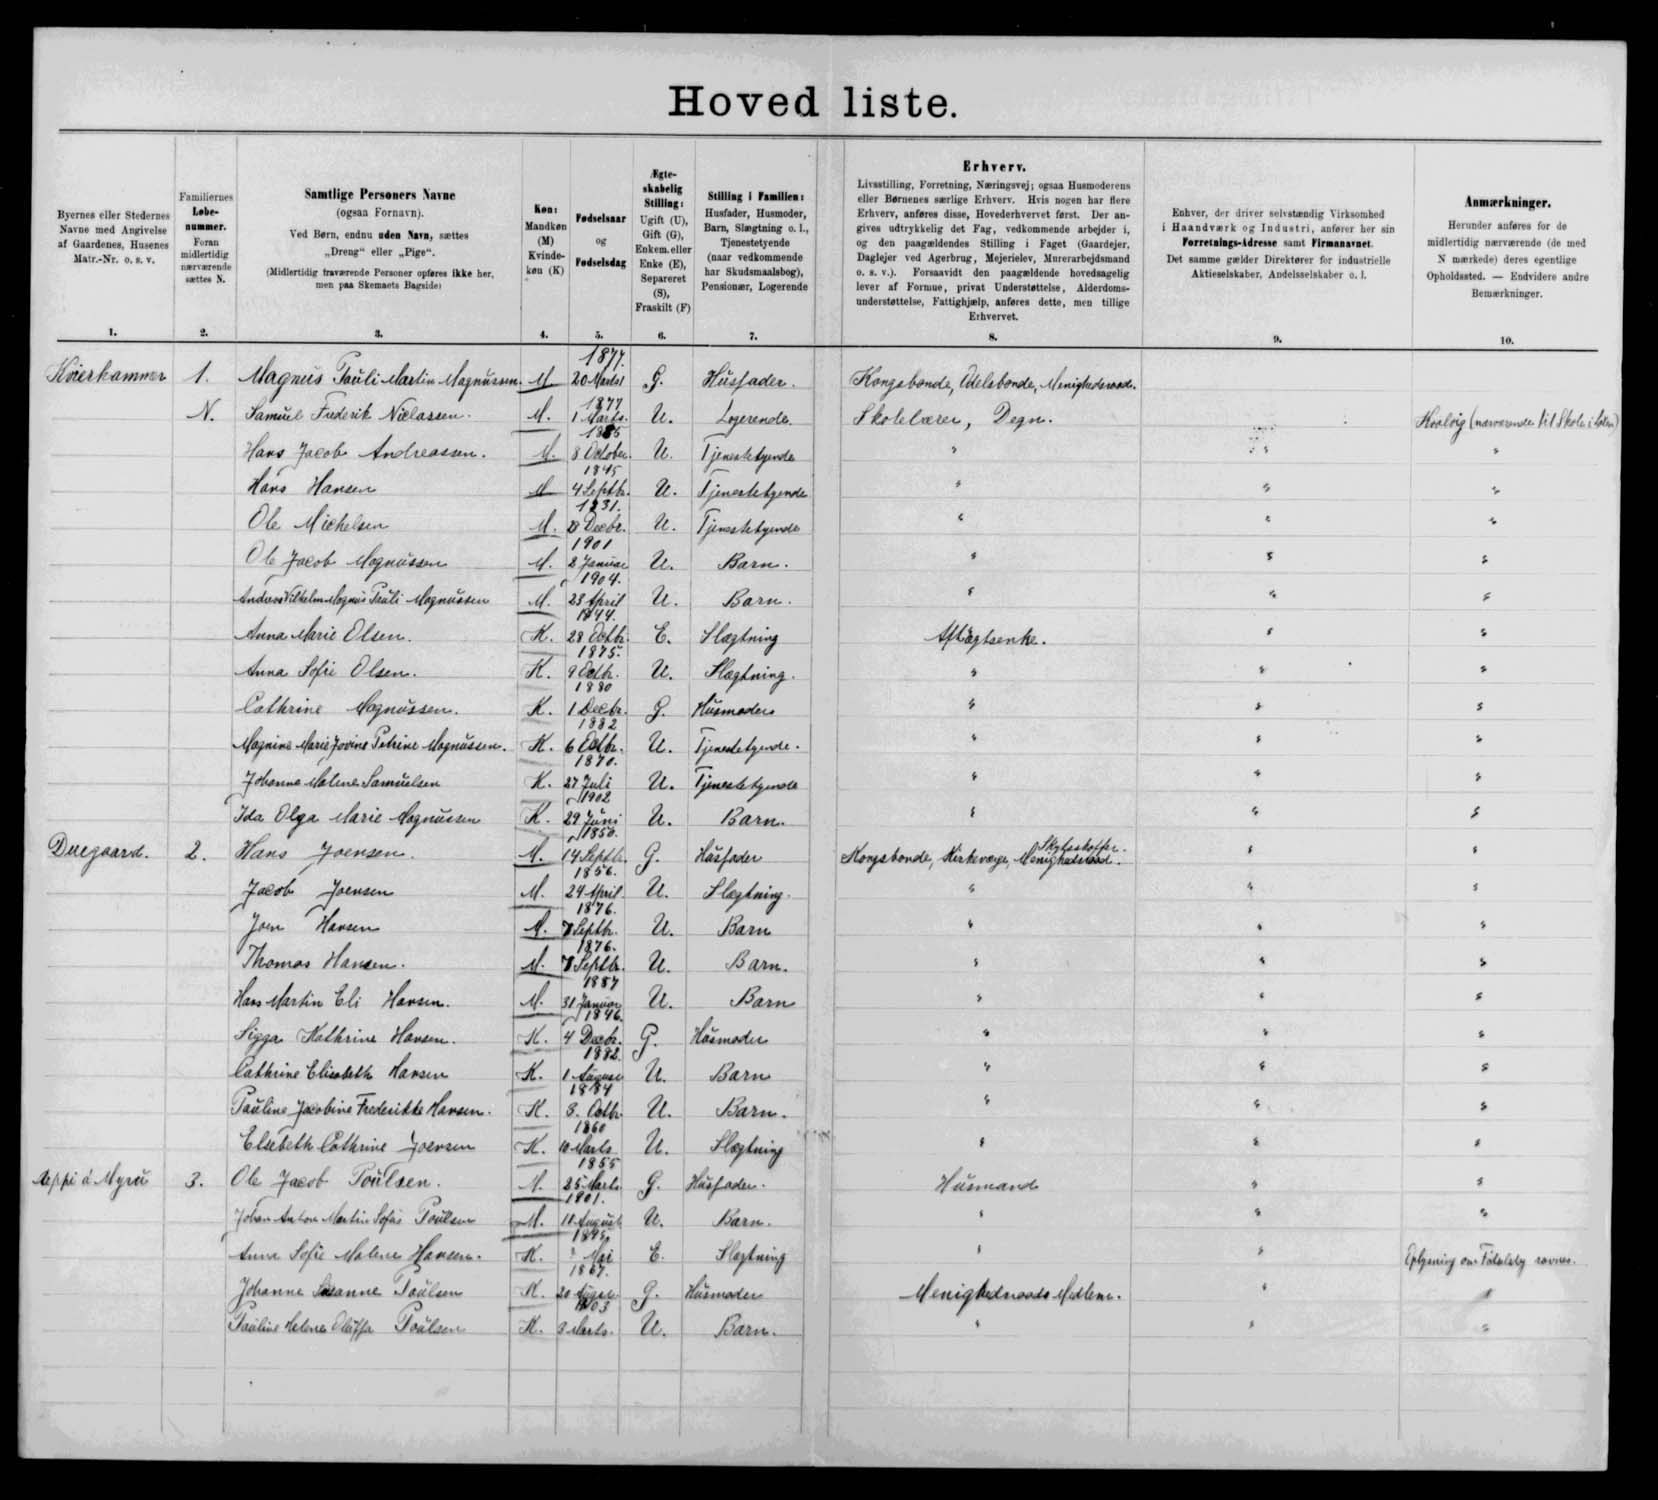 Hovedliste.
Byernes eller Stedernes Navne med Angivelse af Gaardenes, Husenes Matr.-Nr. o. s. v.
Familiernes Løbenummer. Foran midlertidig nærværende sættes N.
Samtlige Personers Navne (ogsaa Fornavn). Ved Børn, endnu uden Navn, sættes „Dreng“ eller „Pige“. (Midlertidig fraværende Personer opføres ikke her, men paa Skemaets Bagside)
Køn: Mandkøn (M) Kvindekøn (K)
Fødselsaar og Fødselsdag
Ægteskabelig Stilling: Ugift (U), Gift (G), Enkem. eller Enke (E), Separeret (S), Fraskilt (F)
Stilling i Familien: Husfader, Husmoder, Barn, Slægtning o. l., Tjenestetyende (naar vedkommende har Skudsmaalsbog), Pensionær, Logerende
Erhverv. Livsstilling, Forretning, Næringsvej; ogsaa Husmoderens eller Børnenes særlige Erhverv. Hvis nogen har flere Erhverv, anføres disse, Hovederhvervet først. Der angives udtrykkelig det Fag, vedkommende arbejder i, og den paagældendes Stilling i Faget (Gaardejer, Daglejer ved Agerbrug, Mejerielev, Murerarbejdsmand o. s. v.). Forsaavidt den paagældende hovedsagelig lever af Formue, privat Understøttelse, Alderdomsunderstøttelse, Fattighjælp, anføres dette, men tillige Erhvervet.
Enhver, der driver selvstændig Virksomhed i Haandværk og Industri, anfører her sin Forretnings-Adresse samt Firmanavnet. Det samme gælder Direktører for industrielle Aktieselskaber, Andelsselskaber o. l.
Anmærkninger. Herunder anføres for de midlertidig nærværende (de med N mærkede) deres egentlige Opholdssted. — Endvidere andre Bemærkninger.
1. 2. 3. 4. 5. 6. 7. 8. 9. 10.
Kvierkammer 1. Magnus Pauli Martin Magnussen. M 1877. 20 Marts G. Husfader. Kongsbonde, Odelsbonde, Menighedsraad.
N. Samuel Frederik Niclassen. M. 1877 1 Marts. U. Logerende. Skolelærer, Degn. Hvalvig (nærværende til Skole i
Hans Jacob Andreassen. M. 8 October. U. Tjenestetyende " " "
Hans Hansen M 1845 4 Septbr. U. Tjenestetyende " " "
Ole Michelsen M. 1831. 28 Decbr. U. Tjenestetyende " " "
Ole Jacob Magnussen M. 1901 2 Januar U. Barn. " " "
Andreas Vilhelm Magnus Pauli Magnussen M. 1904. 23 April U. Barn. " " "
Anna Marie Olsen. K. 1844. 28 Octbr. E. Slægtning Aftægtsenke. " "
Anna Sofie Olsen. K. 1875. 9 Octbr. U. Slægtning. " " "
Cathrine Magnussen. K. 1880 1 Decbr. G. Husmoder " " "
Magnine Marie Jovine Petrine Magnussen. K. 1882 6 Octbr. U. Tjenestetyende. " " "
Johanne Malene Samuelsen K. 1870. 27 Juli U. Tjenestetyende " " "
Ida Olga Marie Magnussen K. 1902 29 Juni U. Barn. " " "
Duegaard. 2. Hans Joensen. M. 1850. 14 Septbr. G. Husfader Kongsbonde, Kirkeværge, Skydsskaffer. Menighedsraad. " "
Jacob Joensen M. 1856. 24 April. U. Slægtning. " " "
Joen Hansen M. 1876. 7 Septbr. U. Barn " " "
Thomas Hansen. M. 1876. 7 Septbr. U. Barn. " " "
Hans Martin Eli Hansen. M. 1887 31 Januar U. Barn " " "
Sigga Kathrine Hansen. K. 1846. 4 Decbr. G. Husmoder " " "
Cathrine Elisabeth Hansen K. 1882. 1 August U. Barn " " "
Pauline Jacobine Frederikke Hansen. K. 1884 3. Octbr. U. Barn. " " "
Elsebeth Cathrine Joensen K. 1860 10 Marts U. Slægtning " " "
3. Ole Jacob Poulsen. M. 1855 25 Marts G. Husfader. Husmand " "
Johan Anton Martin Sofus Poulsen M. 1901. 11 August U. Barn. " " "
Anna Sofie Malene Hansen. K. Mai E. Slægtning " " Oplysning om savnes.
Johanne Susanne Poulsen K. 1867. 20 August G. Husmoder Menighedsraads Medlem. " "
Pauline Helene Poulsen K. 1903 3 Marts. U. Barn. " " "